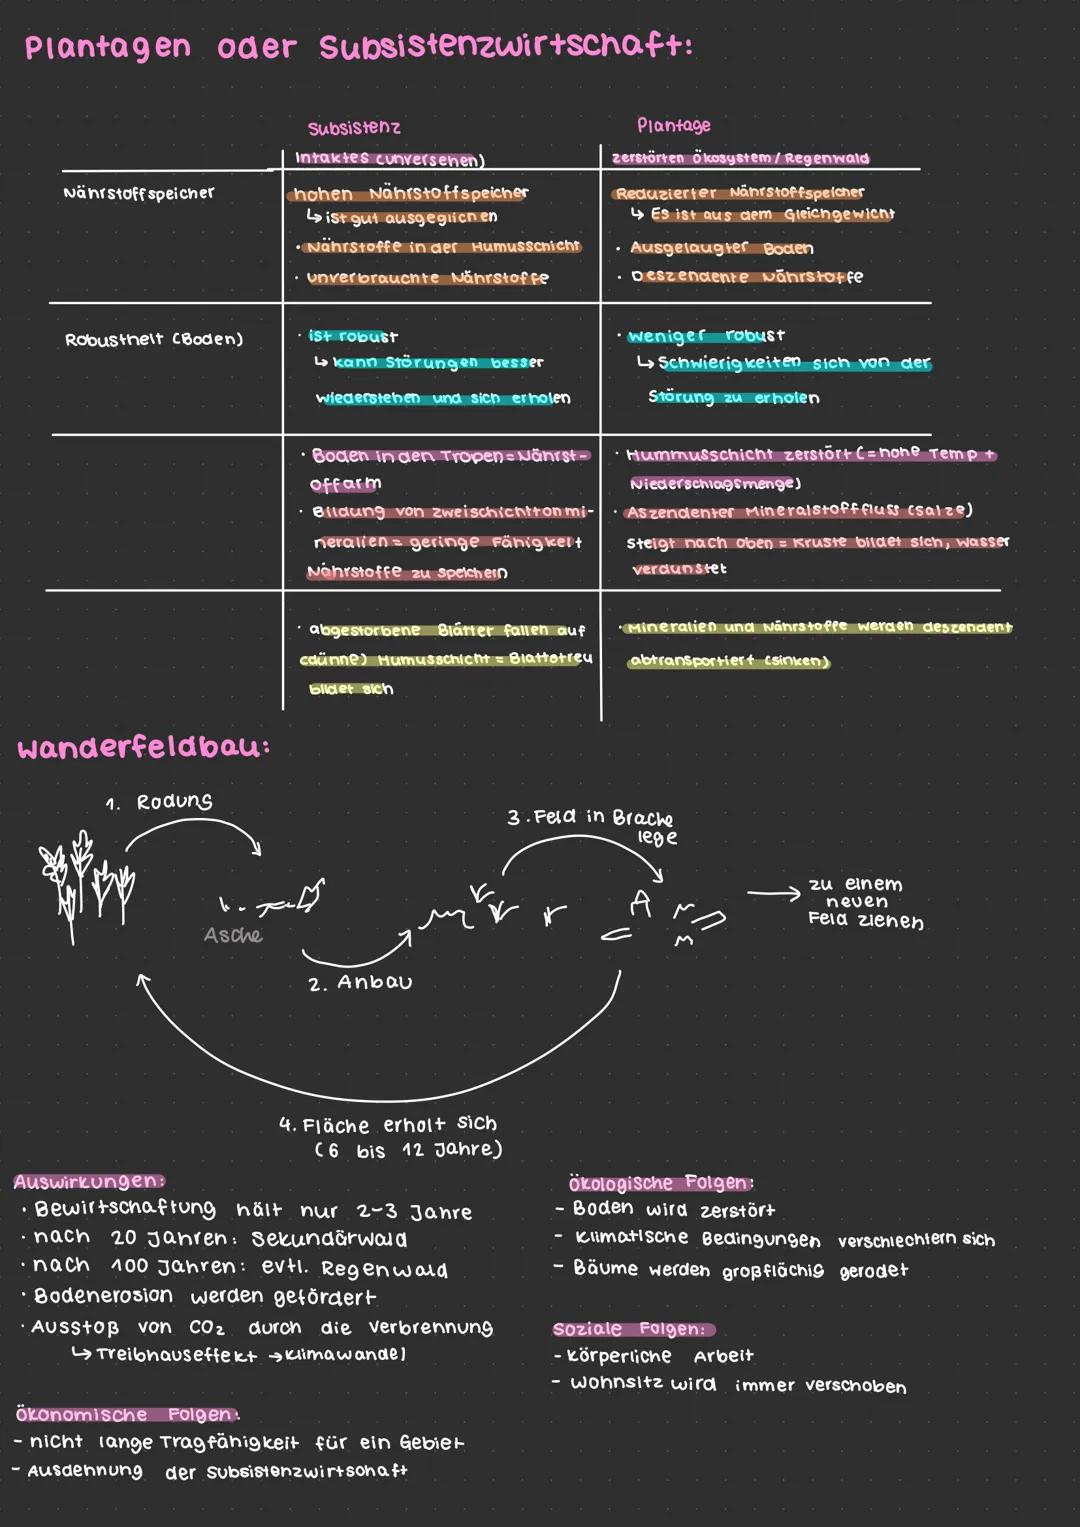 Plantagen oder Subsistenzwirtschaft:
Subsistenz
Plantage
Intaktes (unversehen)
zerstörten Ökosystem / Regenwald
Nährstoffspeicher
hohen Nährstoffspeicher
↳ ist gut ausgeglichen
· Nährstoffe in der Humusschicht
· unverbrauchte Nährstoffe
Reduzierter Nährstoffspeicher
↳ Es ist aus dem Gleichgewicht
· Ausgelaugter Boden
· Deszendente Nährstoffe
Robustheit (Boden)
· ist robust
↳ kann Störungen besser
wiederstehen und sich erholen
· weniger robust
↳ Schwierigkeiten sich von der
Störung zu erholen
· Boden in den Tropen = Nährst-
offarm
· Bildung von zweischichttonmi-
neralien = geringe Fähigkeit
Nährstoffe zu speichern
· Hummusschicht zerstört (= hohe Temp +
Niederschlagsmenge)
· Aszendenter Mineralstofffluss (Salze)
steigt nach oben = Kruste bildet sich, Wasser
verdunstet
· abgestorbene Blätter fallen auf
(dünne) Humusschicht = Blattstreu
bildet sich
· Mineralien und Nährstoffe werden deszendent
abtransportiert (sinken)
Wanderfeldbau:
1. Rodung
Asche
2. Anbau
3. Feld in Brache
lege
zu einem
neuen
Feld ziehen
4. Fläche erholt sich
(6 bis 12 Jahre)
Auswirkungen:
· Bewirtschaftung hält nur 2-3 Jahre
· nach 20 Jahren: Sekundärwald
· nach 100 Jahren: evtl. Regenwald
· Bodenerosion werden gefördert
· Ausstoß von CO2 durch die Verbrennung
↳ Treibhauseffekt → Klimawandel
ökonomische Folgen:
- nicht lange Tragfähigkeit für ein Gebiet
- Ausdehnung der Subsistenzwirtschaft
ökologische Folgen:
- Boden wird zerstört
- klimatische Bedingungen verschlechtern sich
- Bäume werden großflächig gerodet
Soziale Folgen:
- körperliche Arbeit
- Wohnsitz wird immer verschoben